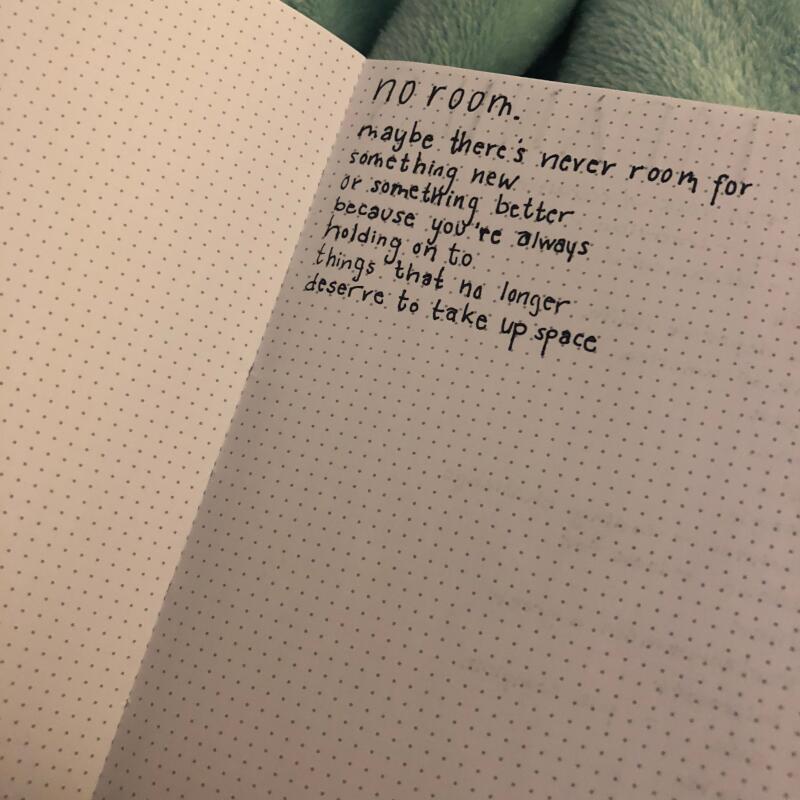 no room.
maybe there's never room for
something new
or something better
because you're always
holding on to
things that no longer
deserve to take up space